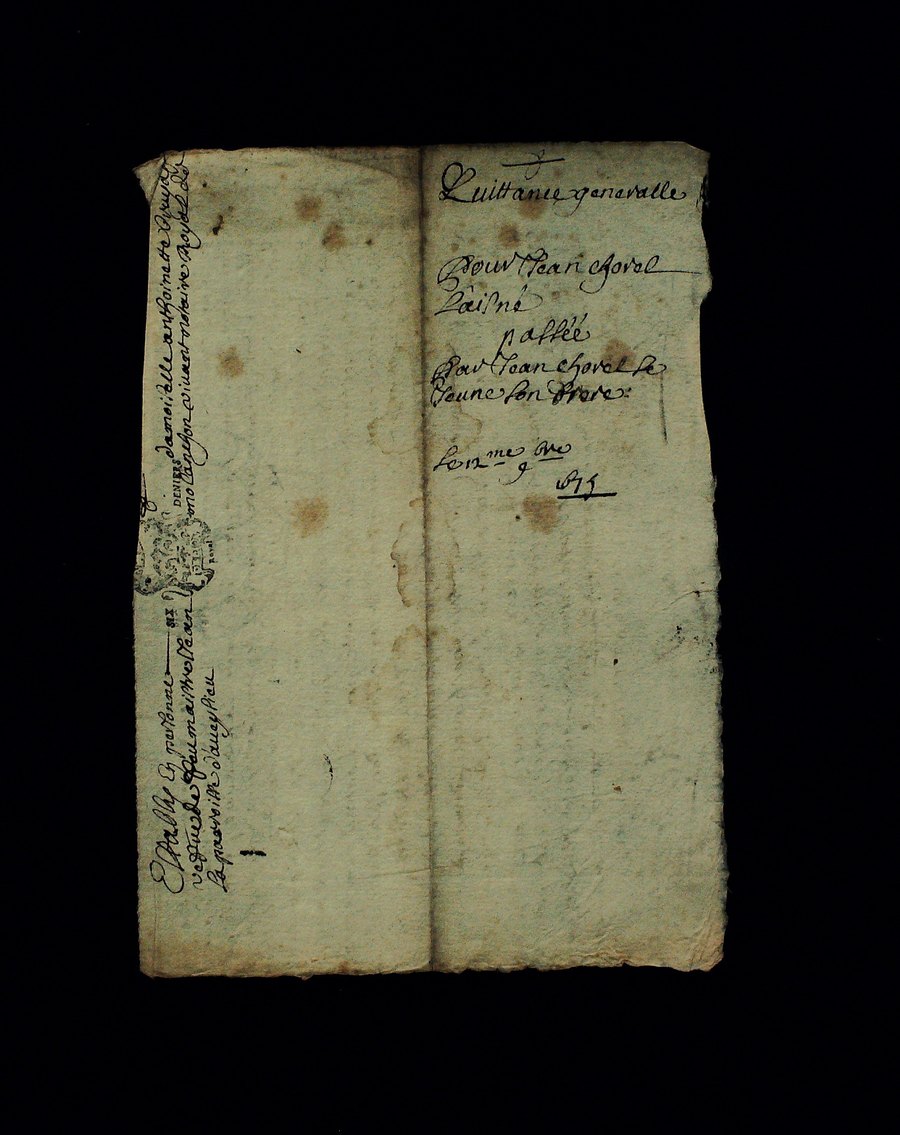 Quittance generalle
Pour Jean chorel
L'aisné
passéé
Par Jean chorel le
Jeune son frere
Le 12me 9bre
1675
SIX DENIERS
Establye En personne damoiselle anthoinette
vefve de feu maistre Jean molançhon vivant notaire Royal de
la parroisse d'aveysieu